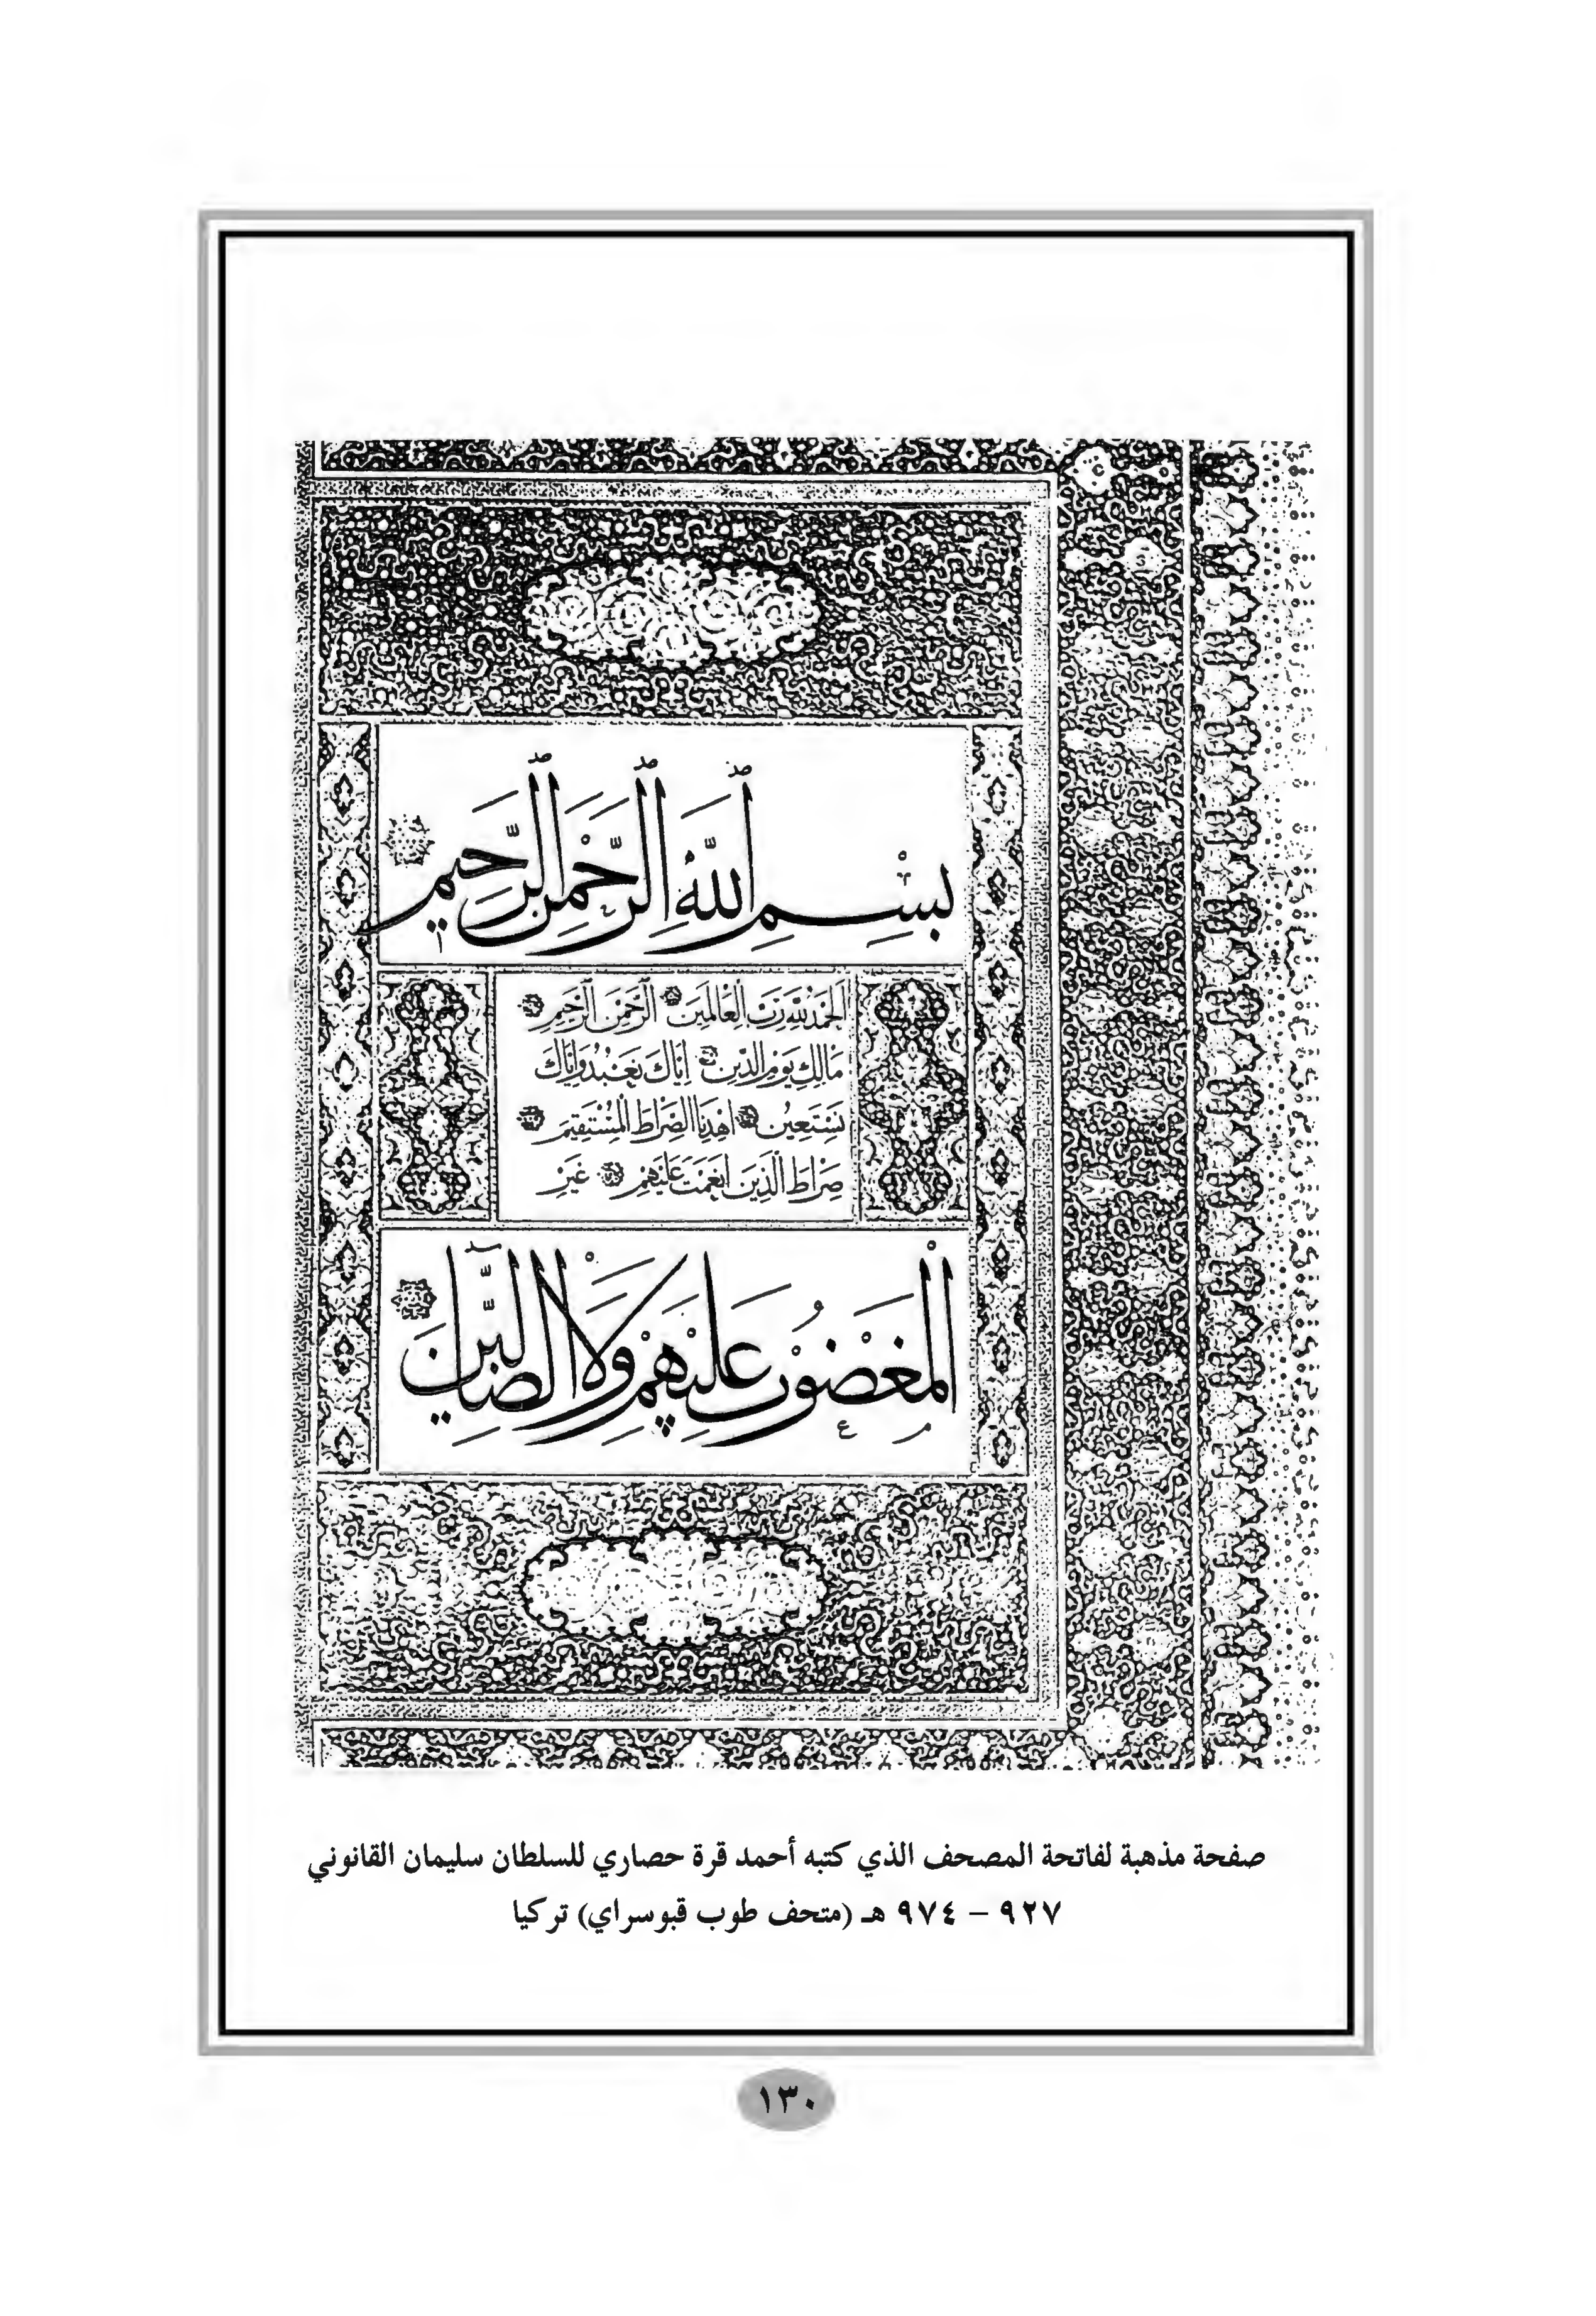 بِسْمِ اللَّهِ الرَّحْمٰنِ الرَّحِيمِ
اَلْحَمْدُ لِلَّهِ رَبِّ الْعَالَمِينَ الرَّحْمٰنِ الرَّحِيمِ
مَالِكِ يَوْمِ الدِّينِ اِيَّاكَ نَعْبُدُ وَاِيَّاكَ
نَسْتَعِينُ اِهْدِنَا الصِّرَاطَ الْمُسْتَقِيمَ
صِرَاطَ الَّذِينَ اَنْعَمْتَ عَلَيْهِمْ غَيْرِ
الْمَغْضُوبِ عَلَيْهِمْ وَلَا الضَّالِّينَ
صفحة مذهبة لفاتحة المصحف الذي كتبه أحمد قرة حصاري للسلطان سليمان القانوني
٩٢٧ – ٩٧٤ هـ (متحف طوب قبوسراي) تركيا
١٣٠